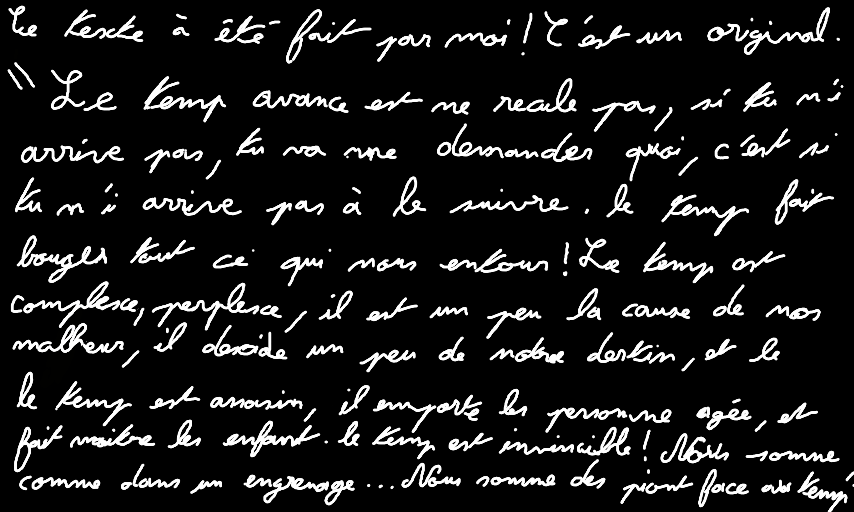 Le texte à été fait par moi! C'est un original.
"Le temp avance est ne recule pas, si tu n'i
arrive pas, tu va me demander quoi, c'est si
tu n'i arrive pas à le suivre. le temp fait
bouger tout ce qui nous entour! Le temp est
complexe, perplexe, il est un peu la cause de nos
malheur, il deside un peu de notre destin, et le
le temp est assasin, il emporte les personne agée, et
fait naitre les enfant. le temp est invincible! Nous somme
comme dans un engrenage... Nous somme des piont face au temp"